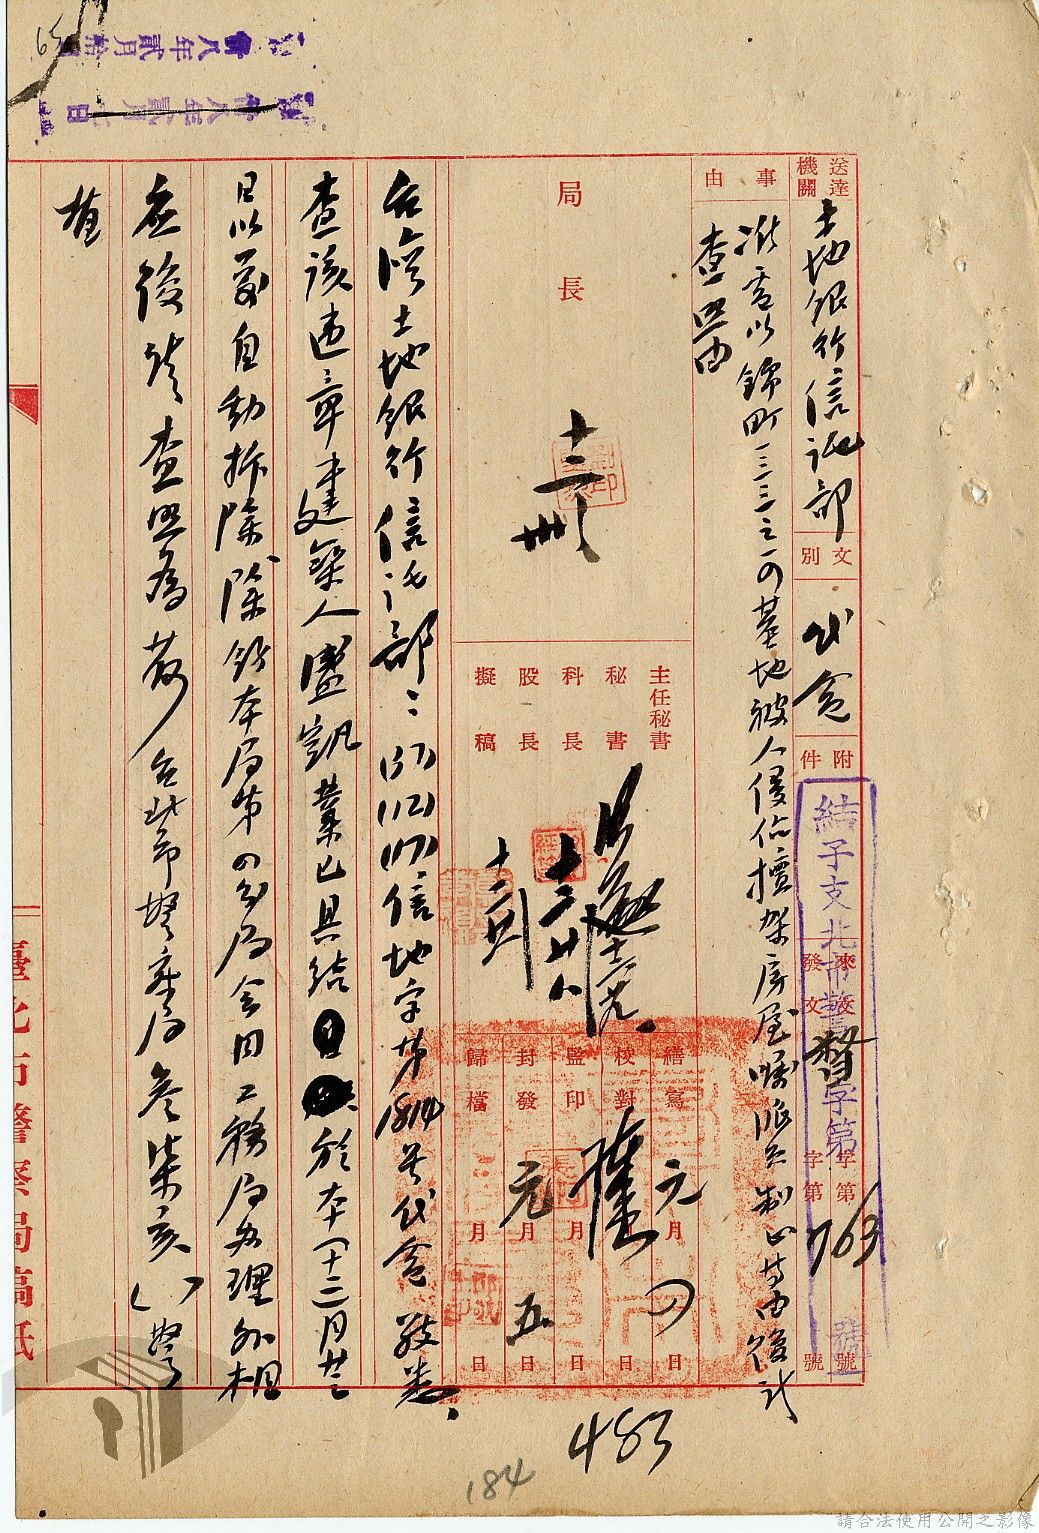 送達機關
土地銀行信託部
文別
代電
附件
結子支北市警督字第 號
來文 字第 號
發文 字第 號
763
事由
准電以錦町一三三之一の基地被人侵佔擅架房屋囑派員制止等由復請
查照由
局長
十二 卅
主任秘書
秘書
科長
股長
擬稿
繕寫 元月 の日
校對 月 日
監印 月 日
封發 元月 五日
歸檔 月 日
台灣土地銀行信託部:(37)(12)(17)信地字第1814號代電敬悉.
查該違章建築人盧凱業已具結 於本(十二)月廿三
日以前自動拆除除飭本局第の分局會同工務局办理外相
應復請查照為荷 台北市警察局叁柒亥( )警
督
臺北市警察局稿紙
卅八年貳月
卅八年貳月 日
65
483
184
請合法使用公開之影像